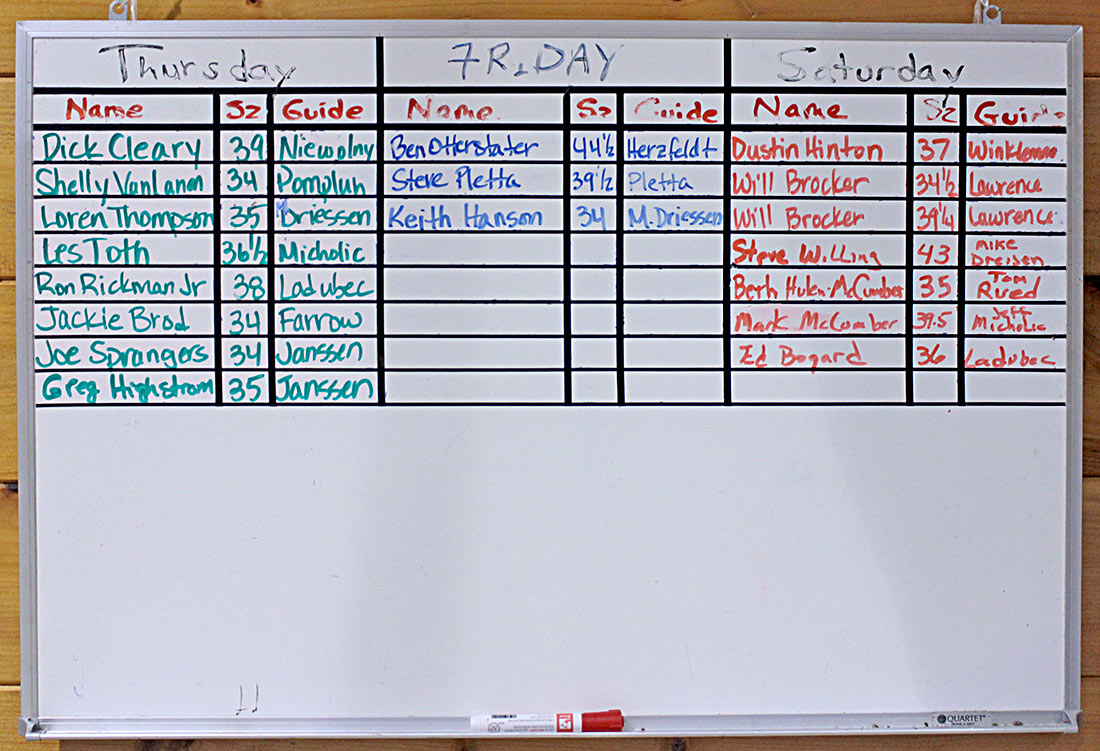 Thursday FRiDAY Saturday
Name Sz Guide Name Sz Guide Name Sz Guide
Dick Cleary 39 Niewolny Ben Otterstater 44 1/2 Herzfeldt Dustin Hinton 37 Winkleman
Shelly VanLanen 34 Pomplun Steve Pletta 39 1/2 Pletta Will Brocker 34 1/2 Lawrence
Loren Thompson 35 M Driessen Keith Hanson 34 M. Driessen Will Brocker 39 1/4 Lawrence
Les Toth 36 1/2 Micholic Steve Willing 43 mike Dreisen
Ron Rickman Jr 38 Ladubec Berh Hulen-McCumber 35 Tom Rued
Jackie Brod 34 Farrow Mark McCumber 39.5 Jeff Micholic
Joe Sprangers 34 Janssen Ed Bogard 36 Ladubec
Greg Highstrom 35 Janssen
QUARTET